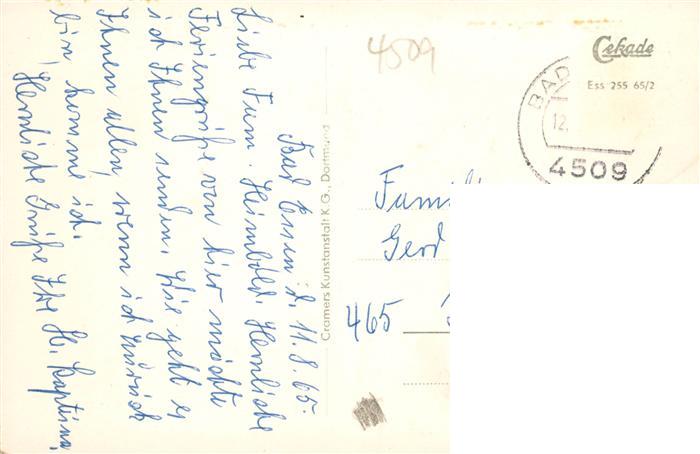 Bad Essen d. 11.8.65.
Liebe Fam. Heimbold. Herzliche
Feriengrüße von hier möchte
ich Ihnen senden. Wie geht es
Ihnen allen, wenn ich zurück
bin, komme ich.
Herzliche Grüße Ihre H.
Cramers Kunstanstalt K.G., Dortmund
4509
Cekade
Ess 255 65/2
BAD
12.
4509
Gerd
465